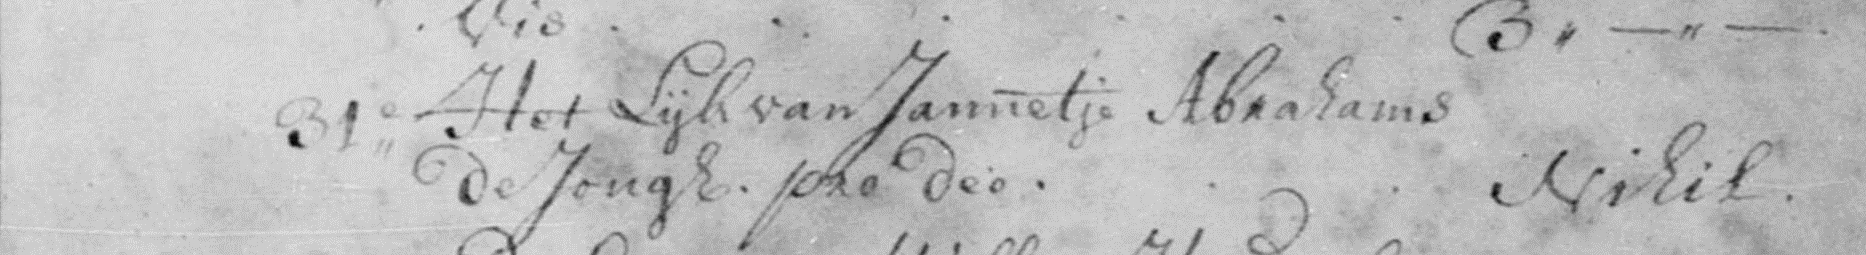 . Vis . . . . . . 3 „ — „ — .
31e „ Het Lijk van Jannetje Abrahams
de Jongh. pro deo . . . Nihil.